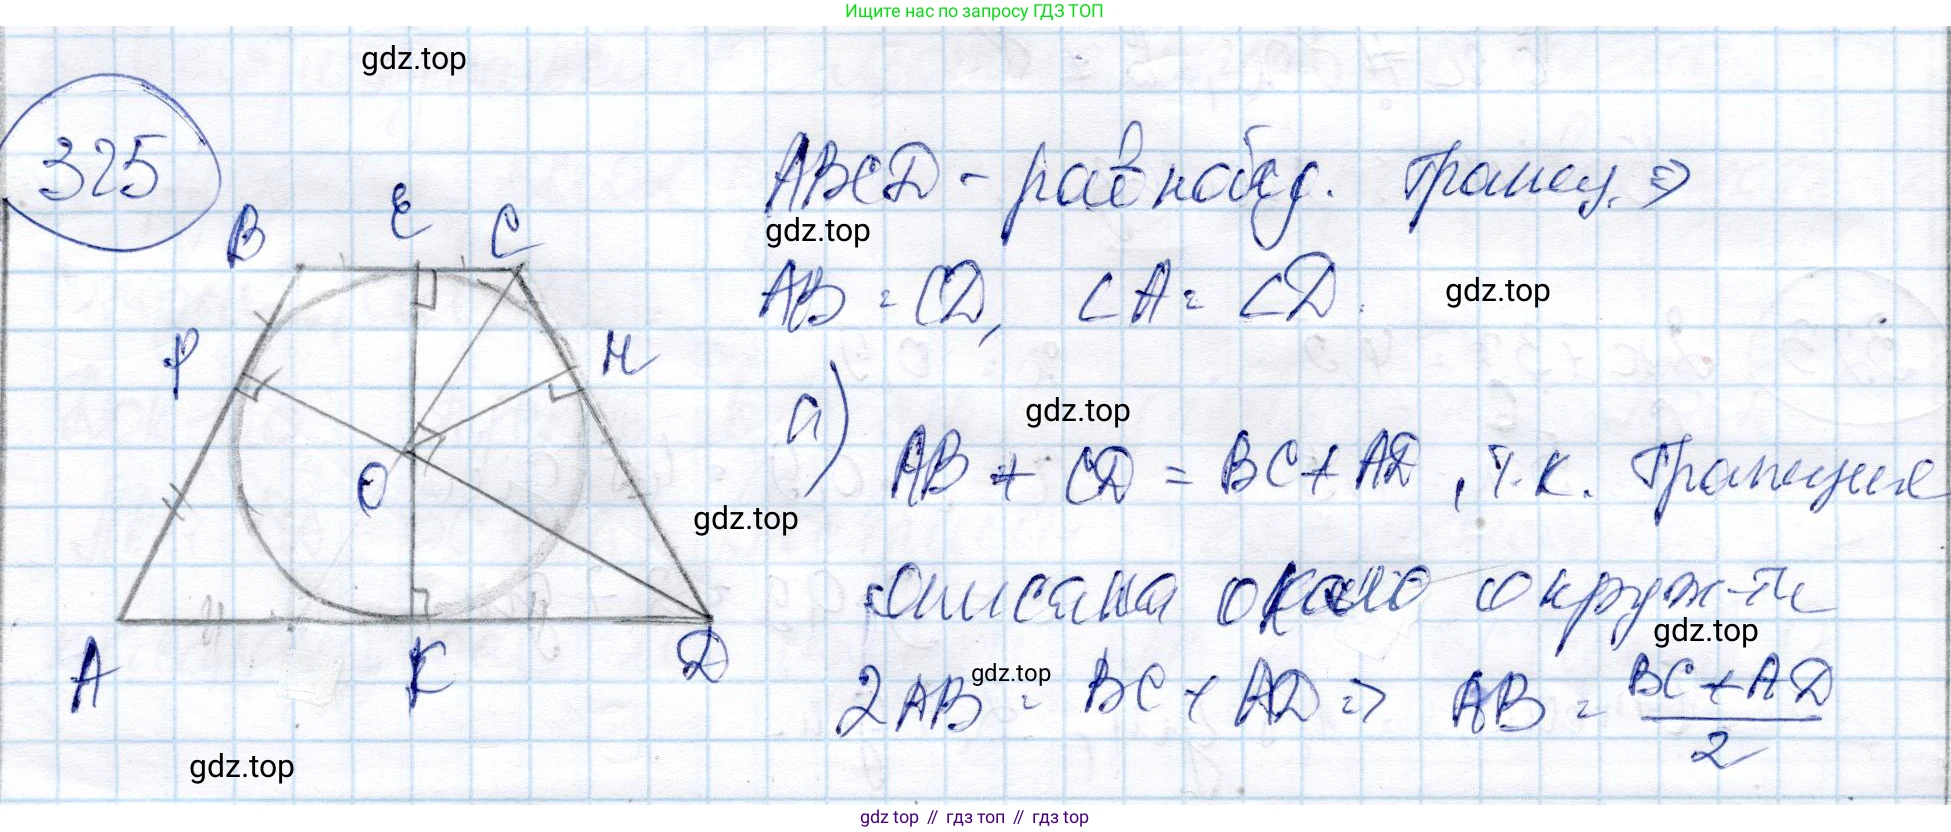 Ищите нас по запросу ГДЗ ТОП
gdz.top
325
B
E
C
P
H
O
A
K
D
ABCD - равнобед. трапец. ⇒
gdz.top
AB = CD, ∠A = ∠D.
gdz.top
а)
gdz.top
AB + CD = BC + AD, т.к. трапеция
gdz.top
описана около окруж-ти
gdz.top
gdz.top
2AB = BC + AD ⇒ AB = (BC + AD)/2
gdz.top
gdz top // гдз топ // гдз top